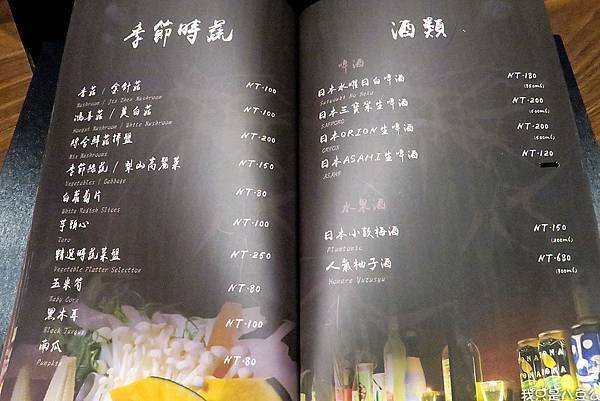 季節時蔬
香菇 / 金針菇 NT-100
鴻喜菇 / 美白菇 NT-100
綜合鮮菇拼盤 NT-200
Mix Mushrooms
季節綠蔬 / 梨山高麗菜 NT-150
Vegetables / Cabbage
白蘿蔔片 NT-80
White Radish Slices
芋頭心 NT-100
Taro
精選時蔬菜盤 NT-250
Vegetable Platter Selection
玉米筍 NT-80
Baby Corn
黑木耳 NT-100
Black Fungus
南瓜 NT-80
Pumpkin
酒類
啤酒
日本水曜日白啤酒 NT-180
(350ml)
日本三寶樂生啤酒 NT-200
SAPPORO (500ml)
日本ORION生啤酒 NT-200
ORION (500ml)
日本ASAHI生啤酒 NT-120
ASAHI
水果酒
日本小鼓梅酒 NT-150
(200ml)
人氣柚子酒 NT-680
我只是八豆公